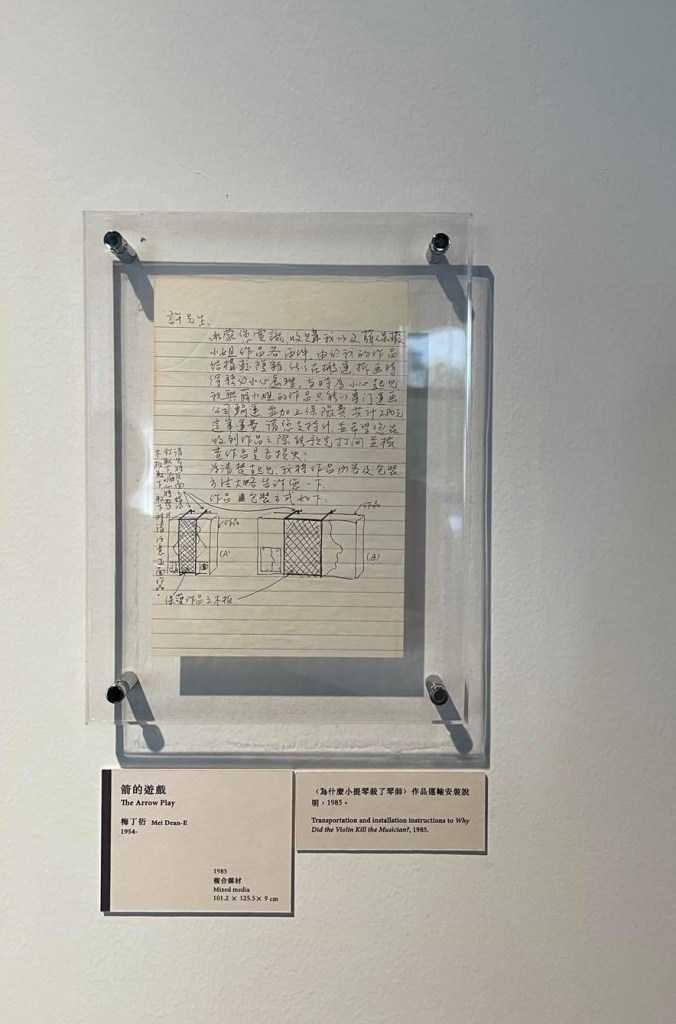 許先生、
承蒙您賞識，收購我以及薛保瑕
小姐作品各兩件，由於我的作品
結構較複雜，所以在搬運拆畫時
得格外小心處理，
我與薛小姐的作品只能以專門運畫
公司輸運並加上保險費共計
這筆運費請您支付，並希望您在
收到作品之際能先打開並檢
查作品是否損失。
為清楚起見，我將作品內容及包裝
方法大略告訴您一下.
作品包裝方式如下.
作品
(A)
作品
(B)
保護作品之木板
箭的遊戲
The Arrow Play
梅丁衍 Mei Dean-E
1954-
1985
複合媒材
Mixed media
101.2 × 125.5× 9 cm
〈為什麼小提琴殺了琴師〉作品運輸安裝說
明，1985。
Transportation and installation instructions to Why
Did the Violin Kill the Musician?, 1985.